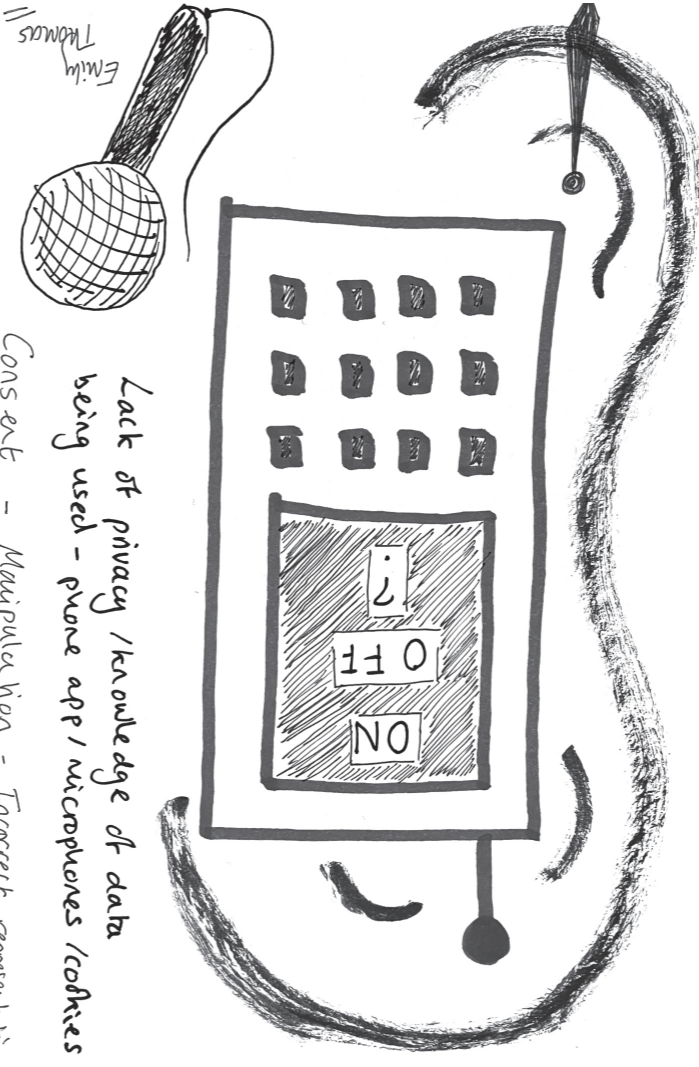 Emily
Thomas
ON
OFF
?
Lack of privacy / knowledge of data
being used - phone app / microphones / cookies
Consent - Manipulation - Incorrect